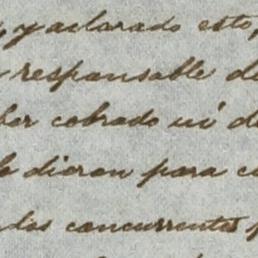 , y aclarado esto,
responsable de
ber cobrado ni de
le dieron para co
ados concurrentes p